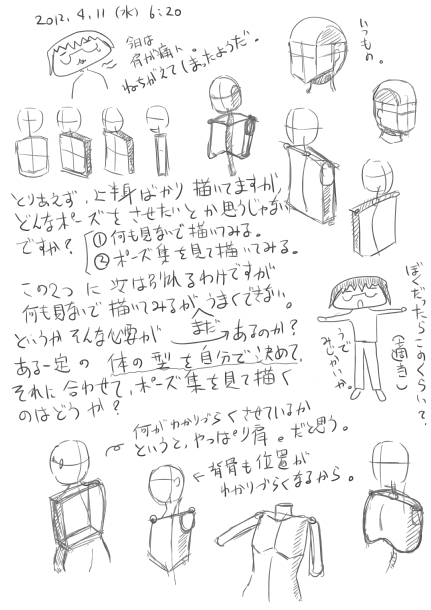 2012.4.11(水) 6:20
今日は
肩が痛い。
ねちがえてしまったようだ。
いつもの。
とりあえず、上半身ばかり描いてますが、
どんなポーズをさせたいとか思うじゃない
ですか?
①何も見ないで描いてみる。
②ポーズ集を見て描いてみる。
この2つに 次は別れるわけですが
何も見ないで描いてみるがうまくできない。
まだ
というかそんな必要が あるのか?
ある一定の 体の型を自分で決めて、
それに合わせて、ポーズ集を見て描く
のはどうか?
ぼくだったらこのくらい?
(適当)
うで
みじかいか。
何がわかりづらくさせているか
というと、やっぱり肩。だと思う。
←背骨も位置が
わかりづらくなるから。